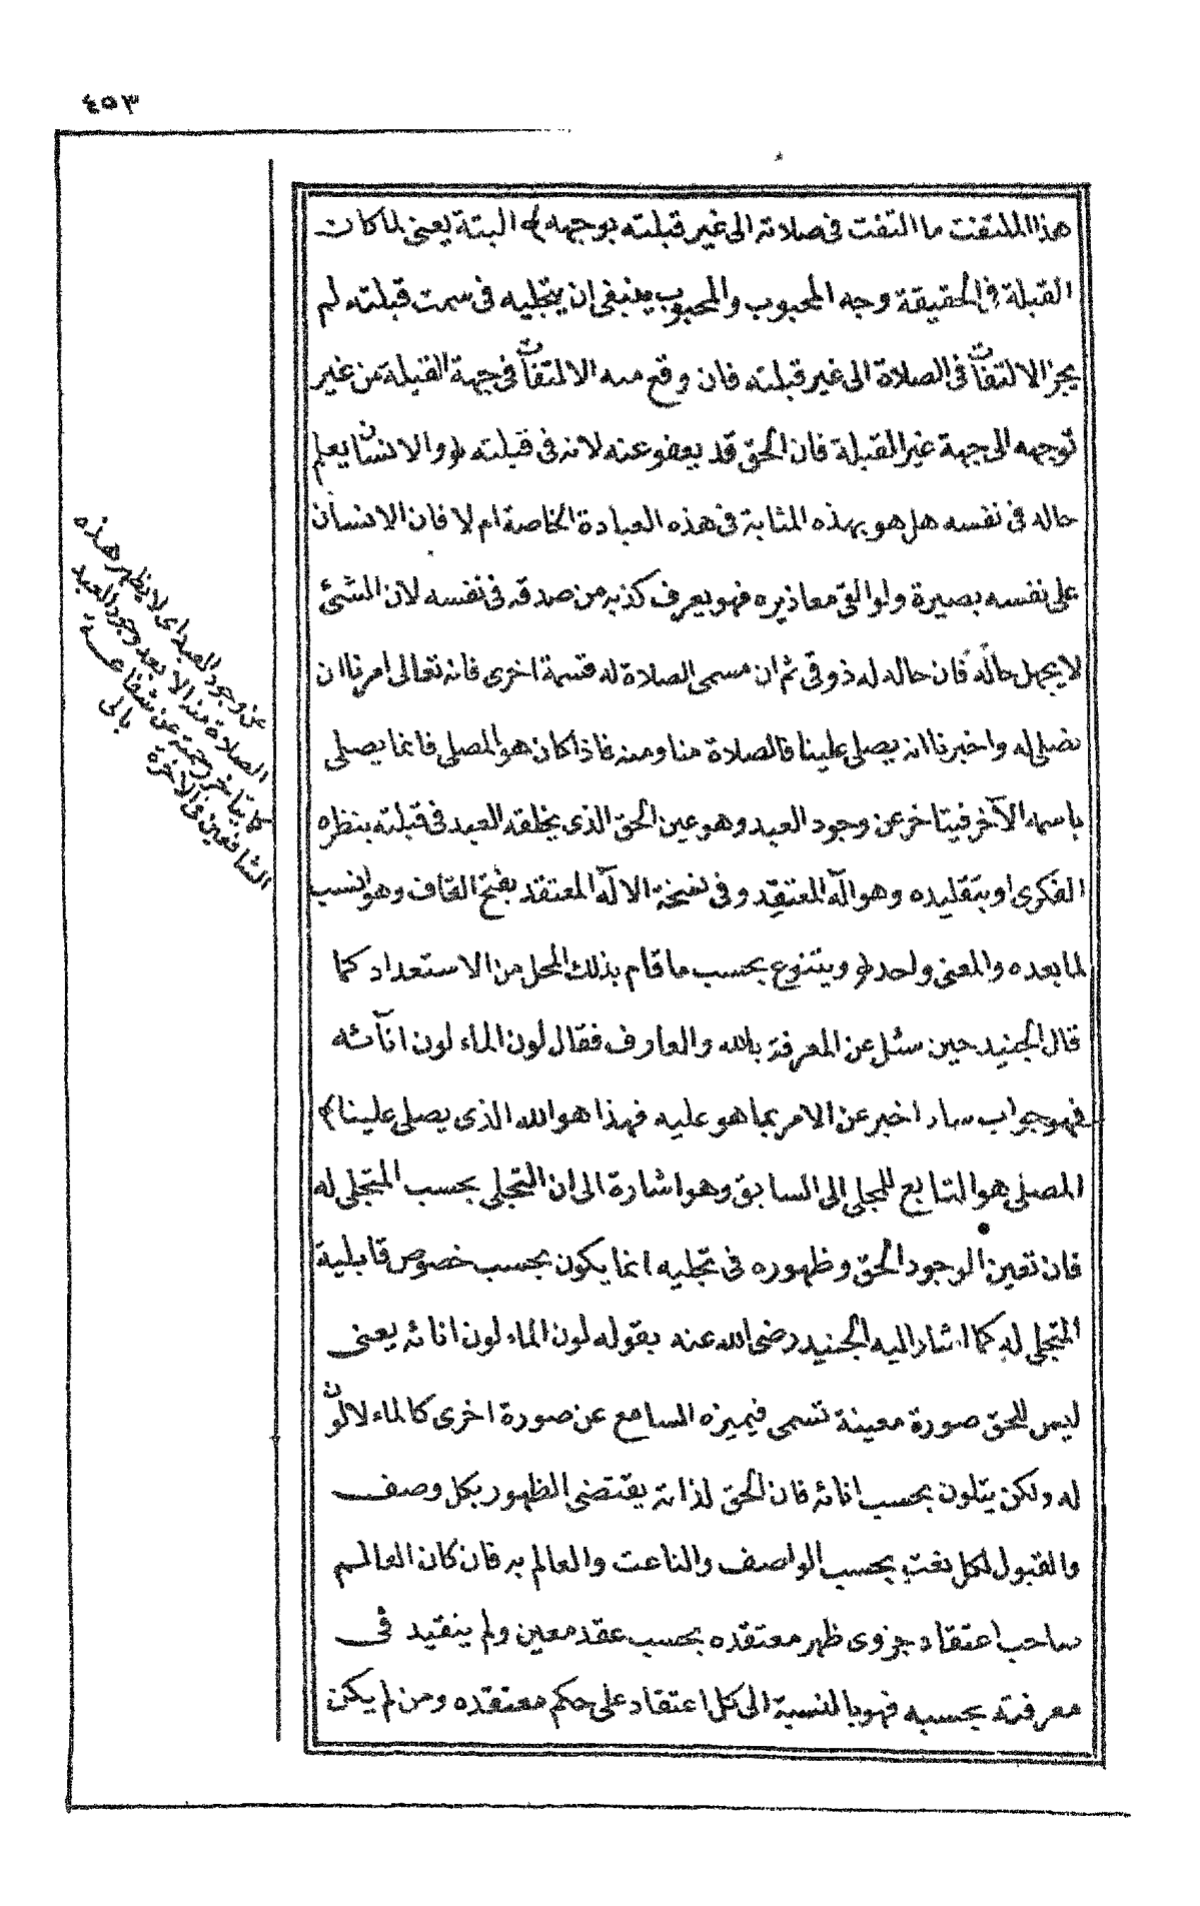 ٤٥٣
هذا الملتفت ما التفت فى صلاته الى غير قبلته بوجهه﴾ البتة يعنى لما كان
القبلة فى الحقيقة وجه المحبوب والمحبوب ينبغى ان يتجليه فى سمت قبلته لم
يجز الالتفات فى الصلاة الى غير قبلته فان وقع منه الالتفات فى جهة القبلة من غير
توجهه الى جهة غير القبلة فان الحق قد يعفو عنه لانه فى قبلته ﴿والانسان يعلم
حاله فى نفسه هل هو بهذه المثابة فى هذه العبادة الخاصة ام لا فان الانسان
على نفسه بصيرة ولو القى معاذيره فهو يعرف كذبه من صدقه فى نفسه لان الشئ
لا يجهل حاله فان حاله له ذوقى ثم ان مسمى الصلاة له قسمة اخرى فانه تعالى امرنا ان
نصلى له واخبرنا انه يصلى علينا فالصلاة منا ومنه فاذا كان هو المصلى فانما يصلى
باسمه الآخر فيتاخر عن وجود العبد وهو عين الحق الذى يخلقه العبد فى قبلته بنظره
الفكرى او بتقليده وهو الآله المعتقد وفى نسخة الاله المعتقد بفتح القاف وهو انسب
لما بعده والمعنى واحد ﴿ ويتنوع بحسب ما قام بذلك المحل من الاستعداد كما
قال الجنيد حين سئل عن المعرفة بالله والعارف فقال لون الماء لون انآئه
فهو جواب ساد اخبر عن الامر بما هو عليه فهذا هو الله الذى يصلى علينا﴾
المصلى هو التابع للمجلى الى السابق وهو اشارة الى ان التجلى بحسب المتجلى له
فان تعين الوجود الحق وظهوره فى تجليه انما يكون بحسب خصوص قابلية
المتجلى له كما اشار اليه الجنيد رضى الله عنه بقوله لون الماء لون انائه يعنى
ليس للحق صورة معينة تسمى فيميزه السامع عن صورة اخرى كالماء لا لون
له ولكن يتلون بحسب انائه فان الحق لذاته يقتضى الظهور بكل وصف
والقبول لكل نعت بحسب الواصف والناعت والعالم به فان كان العالم
صاحب اعتقاد جزوى ظهر معتقده بحسب عقد معين ولم ينقيد فى
معرفته بحسبه فهو بالنسبة الى كل اعتقاد على حكم معتقده ومن لم يكن
عن وجود العبد اى لا يظهر هذه
الصلاة منه الا بعد وجود العبد
كما يتاخر رحمته عن شفاعة
الشافعين فى الآخرة بالى